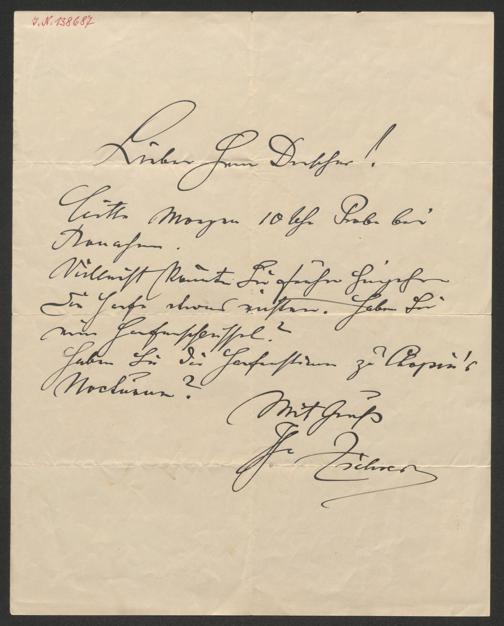 I.N. 138687
Lieber Herr Drescher!
Bitte Morgen 10 Uhr Probe bei
Vielleicht könnte Sie früher hingehen
die Harfe etwas richten. Haben Sie
einen Harfenschlüssel?
Haben Sie die Harfenstimme zu Chopin's
Nocturne?
Mit Gruß